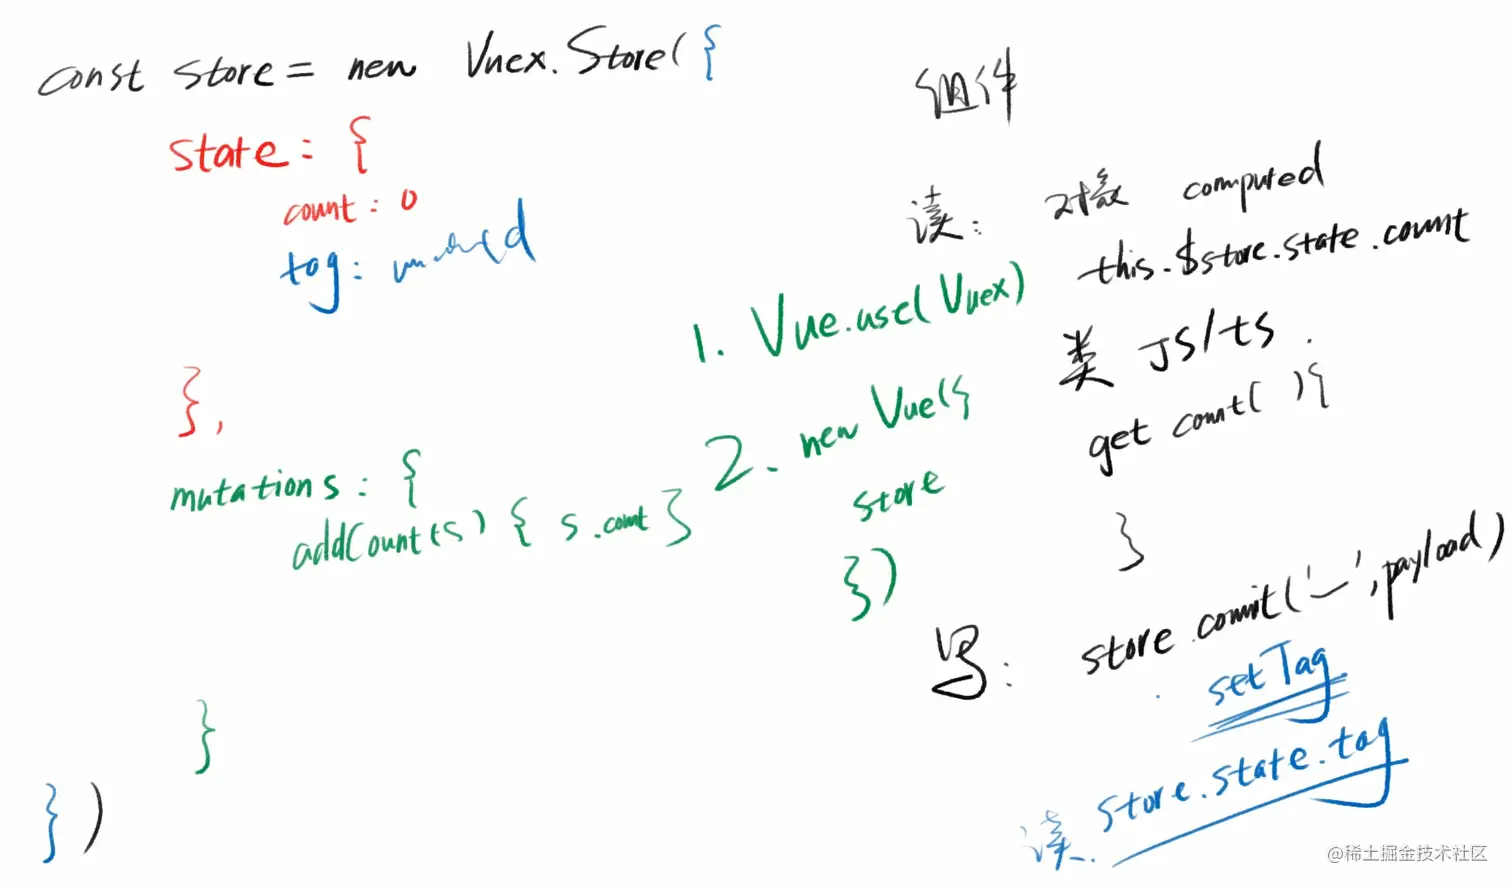 const store = new Vuex.Store({
state: {
count: 0
tag:
},
mutations: {
addCount(s) { s.count }
}
})
1. Vue.use(Vuex)
2. new Vue({
store
})
组件
读: 对象 computed
this.$store.state.count
类 JS/ts
get count( ){
}
写: store.commit('—', payload)
setTag
读. store.state.tag
@稀土掘金技术社区